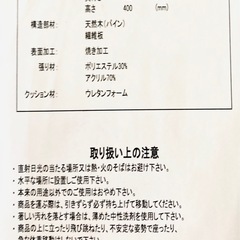 高さ 400 (mm)
構造部材: 天然木(パイン)
繊維板
表面加工: 焼き加工
張り材: ポリエステル30%
アクリル70%
クッション材: ウレタンフォーム
取り扱い上の注意
・直射日光の当たる場所又は熱・火のそばはお避け下さい。
・水平な場所に設置しご使用下さい。
・本来の用途以外でのご使用はおやめ下さい。
・商品を運ぶ際は、引きずらず必ず持ち上げて移動してください。
・著しい汚れを落とす場合は、薄めた中性洗剤を使用して下さい。
・商品の上に立ったり飛び跳ねたり、不安定な姿勢で座ったり、